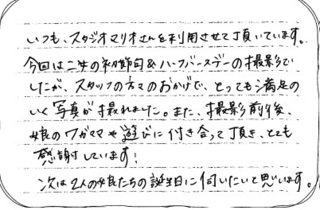 いつも、スタジオマリオさんを利用させて頂いています。
今回は二女の初節句&ハーフバースデーの撮影で
したが、スタッフの方々のおかげで、とっても満足の
いく写真が撮れました。また、撮影前後、
娘のワガママや遊びに付き合って頂き、とても
感謝しています!
次は2人の娘たちの誕生日に伺いたいと思います。